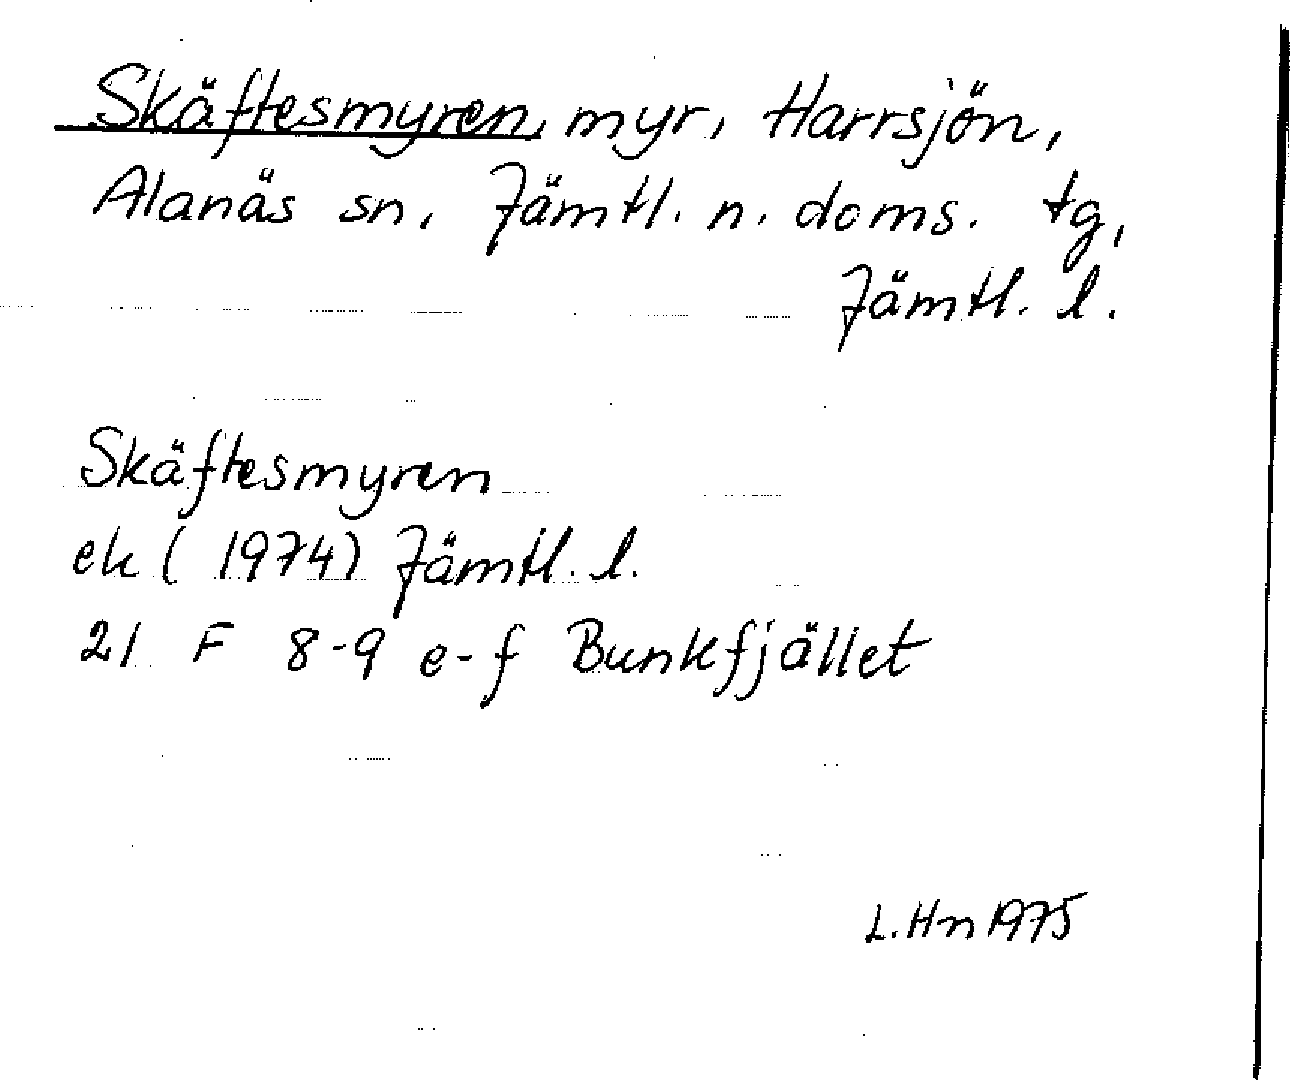 Skäftesmyren, myr, Harrsjön,
Alanäs sn, Jämtl. n. doms. tg,
Jämtl. l.
Skäftesmyren
ek (1974) Jämtl. l.
21 F 8-9 e-f Bunkfjället
L. Hn 1975